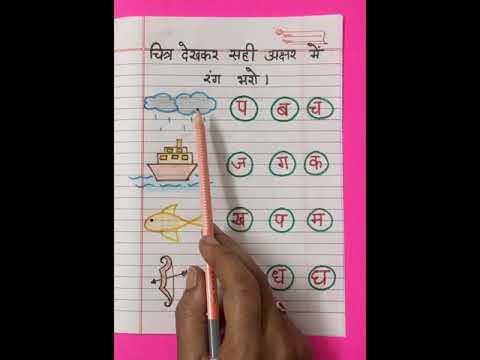 चित्र देखकर सही अक्षर में
रंग भरो।
प ब च
ज ग क
ख प म
ध घ